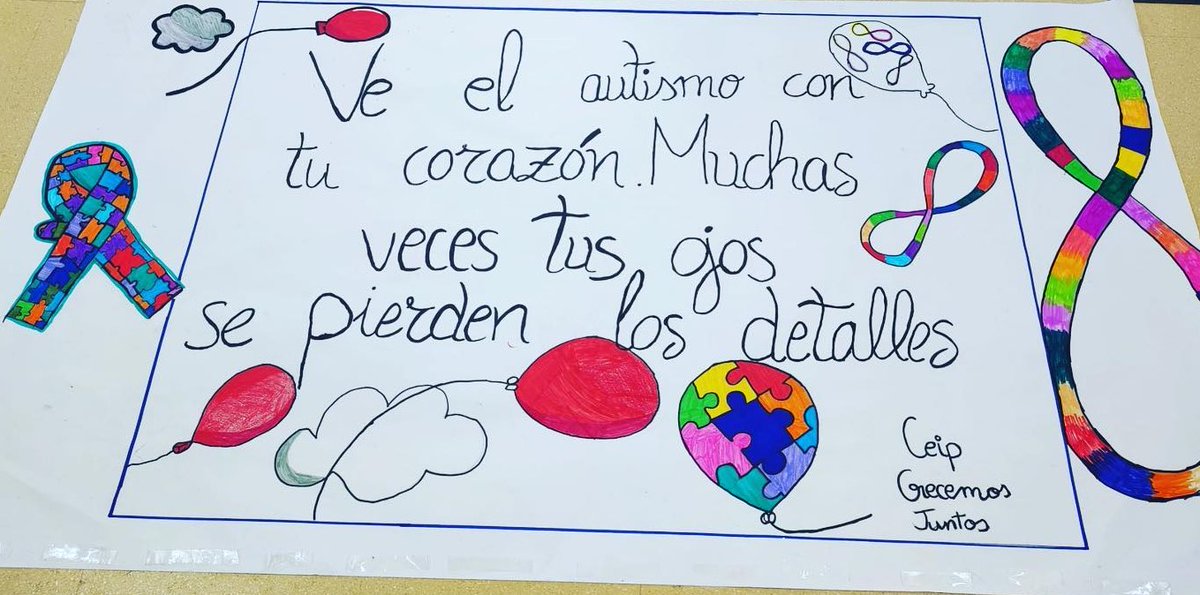 Ve el autismo con
tu corazón. Muchas
veces tus ojos
se pierden los detalles
Ceip
Crecemos
Juntos